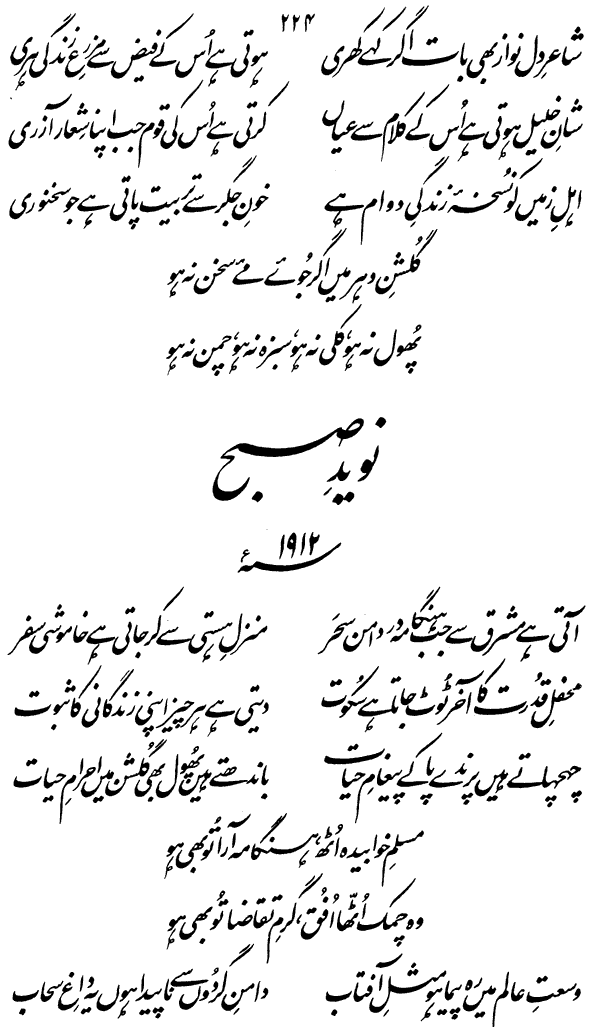 ۲۲۴
شاعرِ دل نواز بھی بات اگر کہے کھری ہوتی ہے اُس کے فیض سے مزرعِ زندگی ہری
شانِ خلیل ہوتی ہے اُس کے کلام سے عیاں کرتی ہے اُس کی قوم جب اپنا شعار آزری
اہلِ زمیں کو نُسخۂ زندگیِ دوام ہے خونِ جگر سے تربیت پاتی ہے جو سخنوری
گُلشنِ دہر میں اگر جُوئے مئے سخن نہ ہو
پُھول نہ ہو، کلی نہ ہو، سبزہ نہ ہو، چمن نہ ہو
نویدِ صبح
۱۹۱۲ء
آتی ہے مشرق سے جب ہنگامہ در دامن سحَر منزلِ ہستی سے کر جاتی ہے خاموشی سفر
محفلِ قُدرت کا آخر ٹُوٹ جاتا ہے سکُوت دیتی ہے ہر چیز اپنی زندگانی کا ثبوت
چہچہاتے ہیں پرندے پا کے پیغامِ حیات باندھتے ہیں پُھول بھی گُلشن میں احرامِ حیات
مسلمِ خوابیدہ اُٹھ، ہنگامہ آرا تُو بھی ہو
وہ چمک اُٹّھا اُفُق، گرمِ تقاضا تُو بھی ہو
وسعتِ عالم میں رہ پیما ہو مثلِ آفتاب دامنِ گردُوں سے ناپیدا ہوں یہ داغِ سحاب